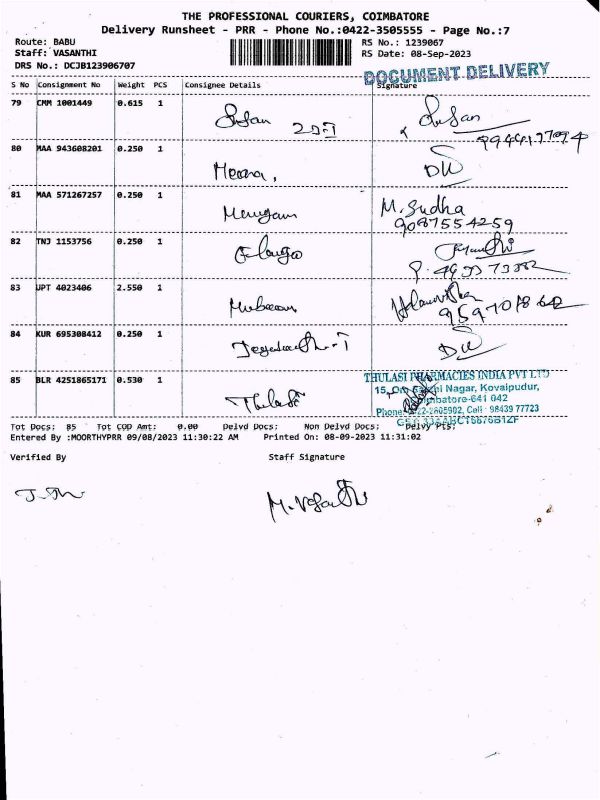 THE PROFESSIONAL COURIERS, COIMBATORE
Delivery Runsheet - PRR - Phone No.:0422-3505555 - Page No.:7
Route: BABU RS No.: 1239067
Staff: VASANTHI RS Date: 08-Sep-2023
DRS No.: DCJB123906707
DOCUMENT DELIVERY
S No Consignment No Weight PCS Consignee Details Signature
79 CMM 1001449 0.615 1
80 MAA 943608201 0.250 1 Meena, DW
81 MAA 571267257 0.250 1 Murugan M. Sudha
9087554259
82 TNJ 1153756 0.250 1 Elango
83 UPT 4023406 2.550 1 Mubarak
84 KUR 695308412 0.250 1 DW
85 BLR 4251865171 0.530 1 Thulasi
THULASI PHARMACIES INDIA PVT LTD
Nagar, Kovaipudur,
Coimbatore-641 042
Phone: 0422-2605902, Cell: 98439 77723
Tot Docs: 85 Tot COD Amt: 0.00 Delvd Docs: Non Delvd Docs: Delvy Pts:
Entered By :MOORTHYPRR 09/08/2023 11:30:22 AM Printed On: 08-09-2023 11:31:02
Verified By Staff Signature